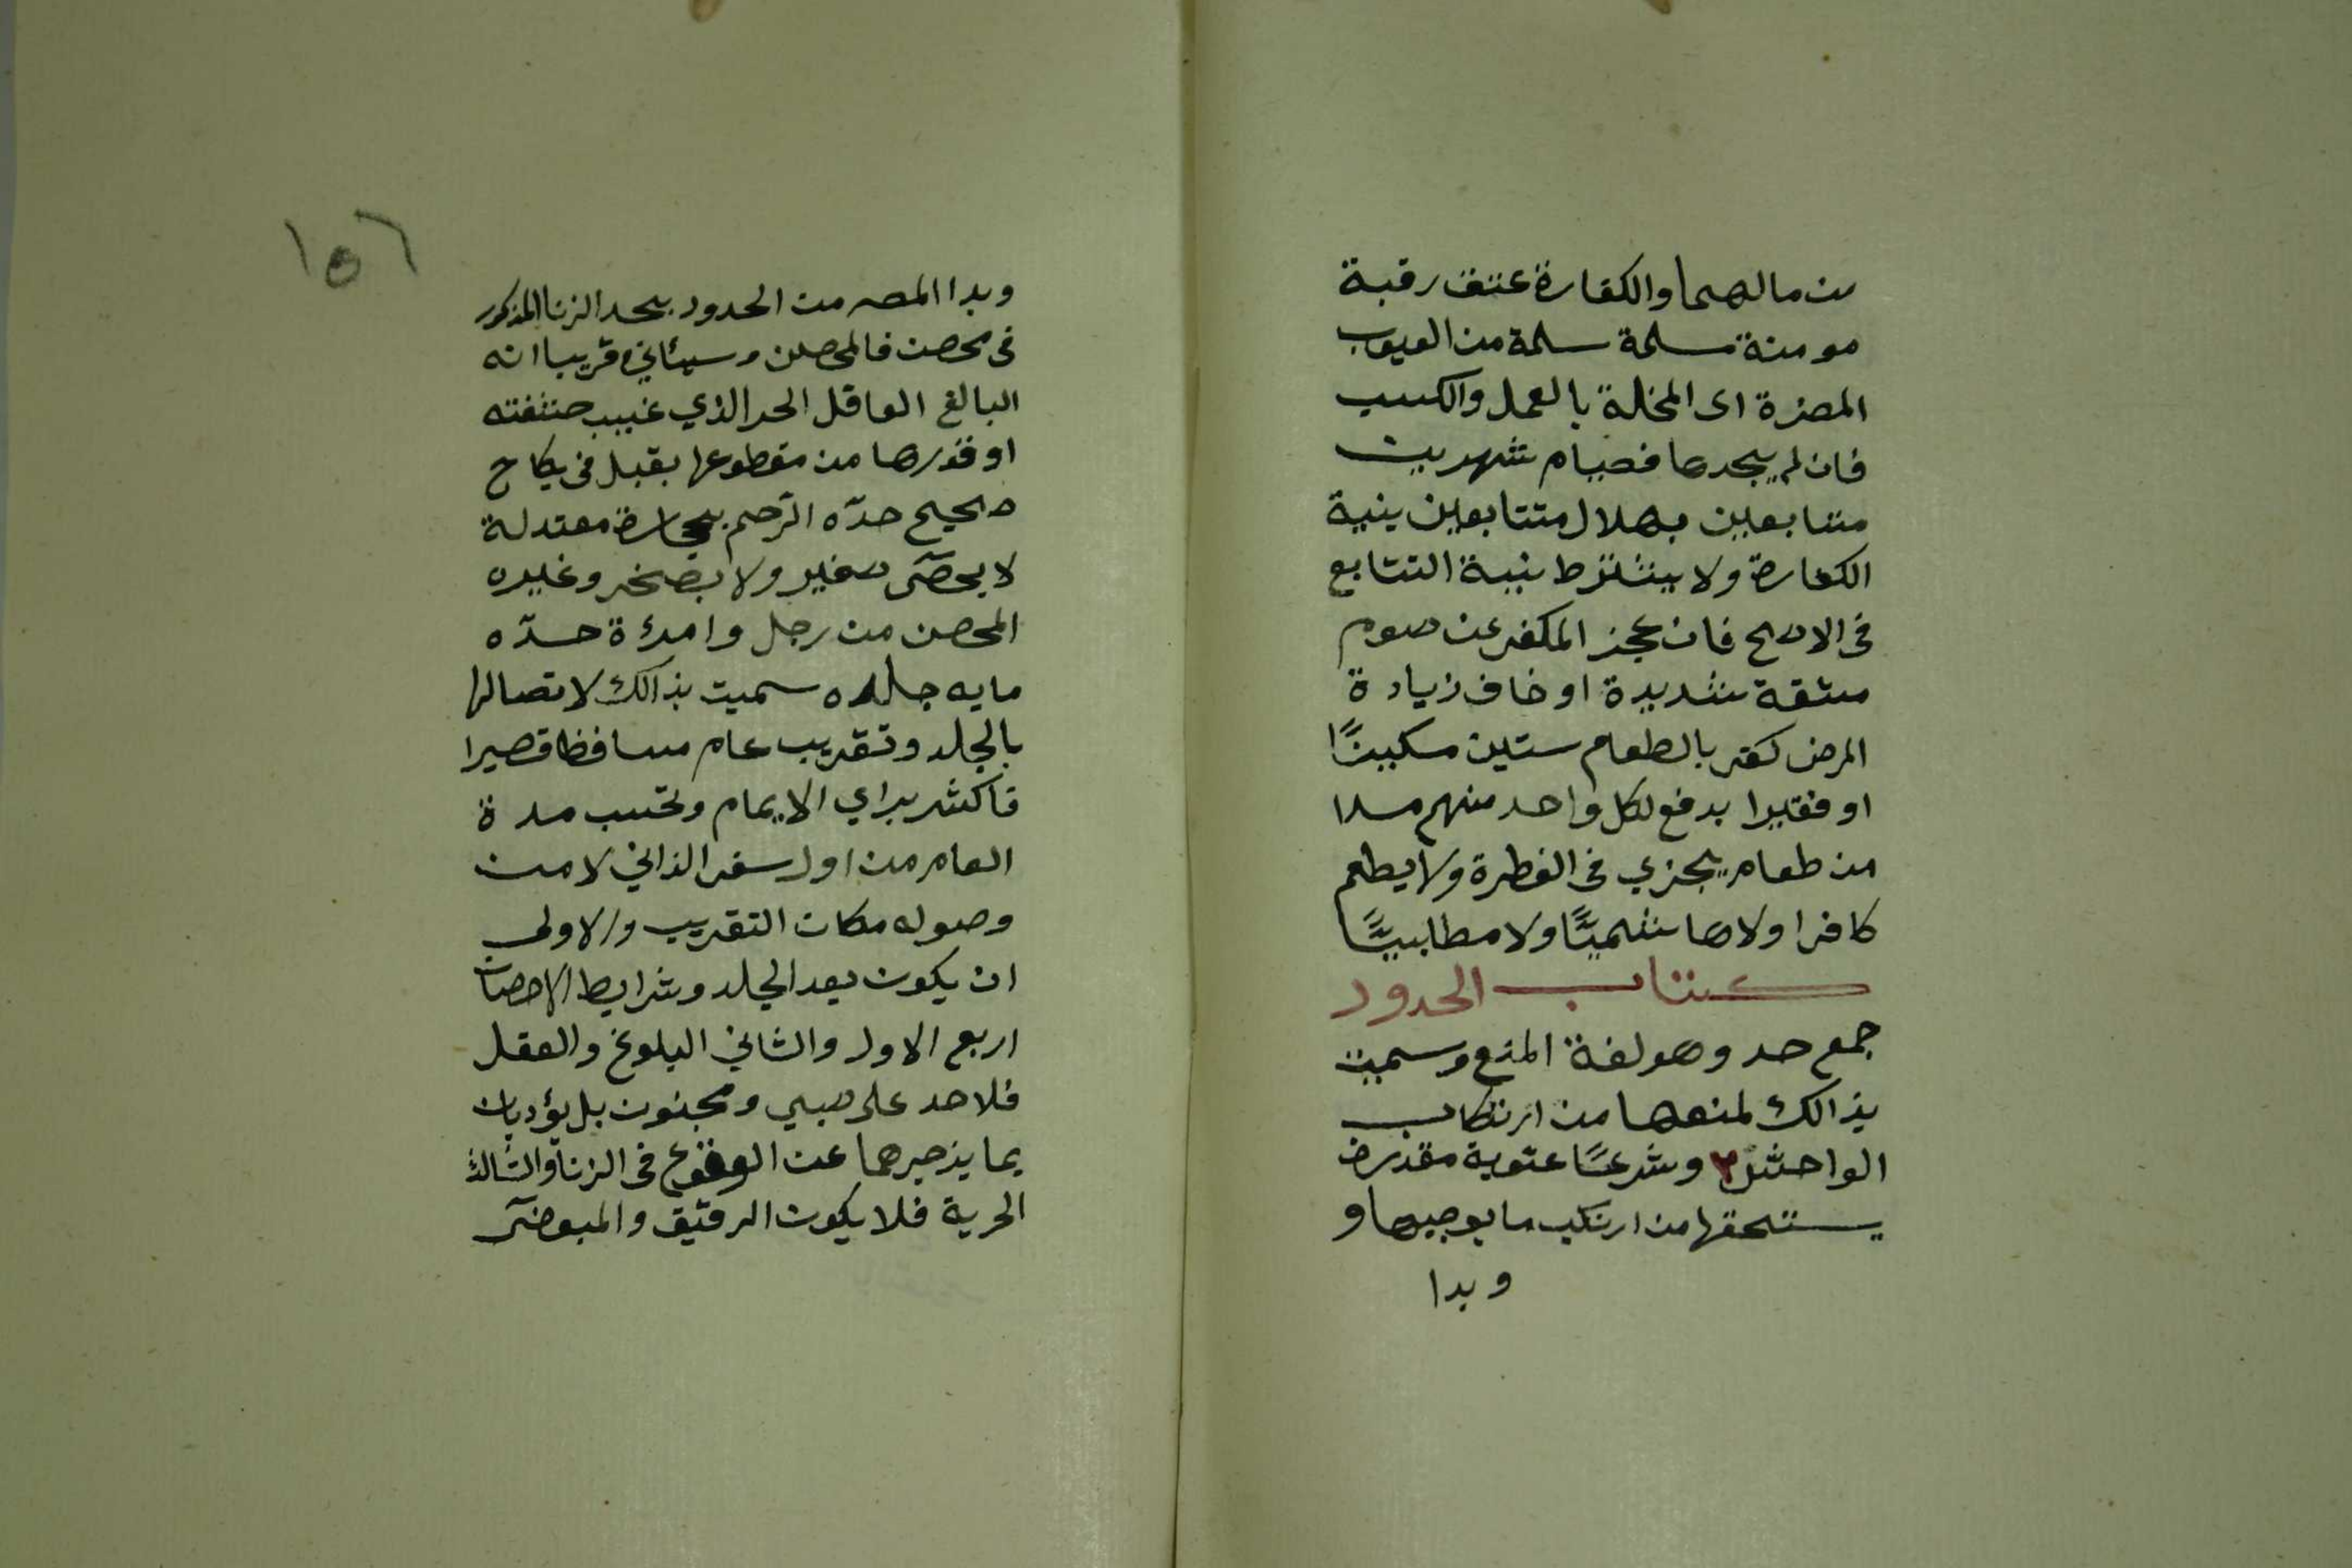 من مالهما والكفارة عتق رقبة
مومنة سلمة سلمة من العيوب
المضرة اى المخلة بالعمل والكسب
فان لم يجدها فصيام شهرين
متتابعين بهلال متتابعين بنية
الكفارة ولا يشترط نية التتابع
فى الاصح فان عجز المكفر عن صوم
مشقة شديدة او خاف زيادة
المرض كفر بالطعام ستين مسكينًا
او فقيرا يدفع لكل واحد منهم مدا
من طعام يجزي فى الفطرة ولا يطعم
كافرا ولا هاشميًّا ولا مطلبيًّا
كتاب الحدود
جمع حد وهو لغة المنع وسميت
بذالك لمنعها من ارتكاب
الواحش وشرعًا عقوبة مقدرة
يستحقها من ارتكب ما يوجبها و
وبدا
١٥٦
وبدا المص من الحدود بحد الزنا المذكور
فى محصن فالمحصن وسيئاتي قريبا انه
البالغ العاقل الحر الذي غيب حشفته
او قدرها من مقطوعها بقبل فى نكاح
صحيح حدّه الرّجم بحجارة معتدلة
لا بحصى صغير ولا بصخر وغيره
المحصن من رجل وامرءة حدّه
مايه جلده سميت بذالك لاتصالها
بالجلد وتقريب عام مسافظ قصيرا
فاكثر براي الايمام وتحسب مدة
العام من اول سفر الذاني لا من
وصوله مكان التقريب والاولى
ان يكون بعد الجلد وشرايط الاحصان
اربع الاول والثاني البلوغ والعقل
فلا حد على صبي ومجنون بل يؤدبان
بما يزجرهما عن الوقوع فى الزنا والثالث
الحرية فلا يكون الرقيق والمبعض